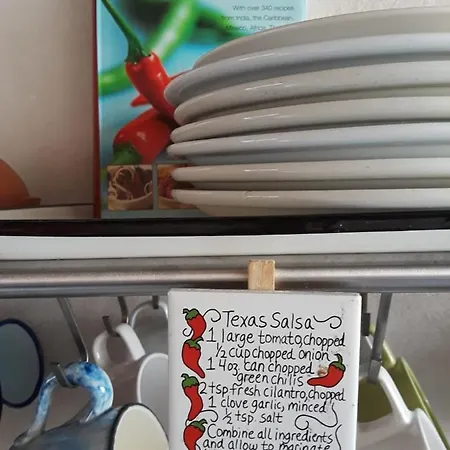 With over 340 recipes
from India, the Caribbean,
Mexico, Africa,
Texas Salsa
1 large tomato, chopped
1/2 cup chopped onion
1 4 oz. can chopped
green chilis
2 tsp fresh cilantro, chopped
1 clove garlic, minced
1/2 tsp. salt
Combine all ingredients
and allow to marinate